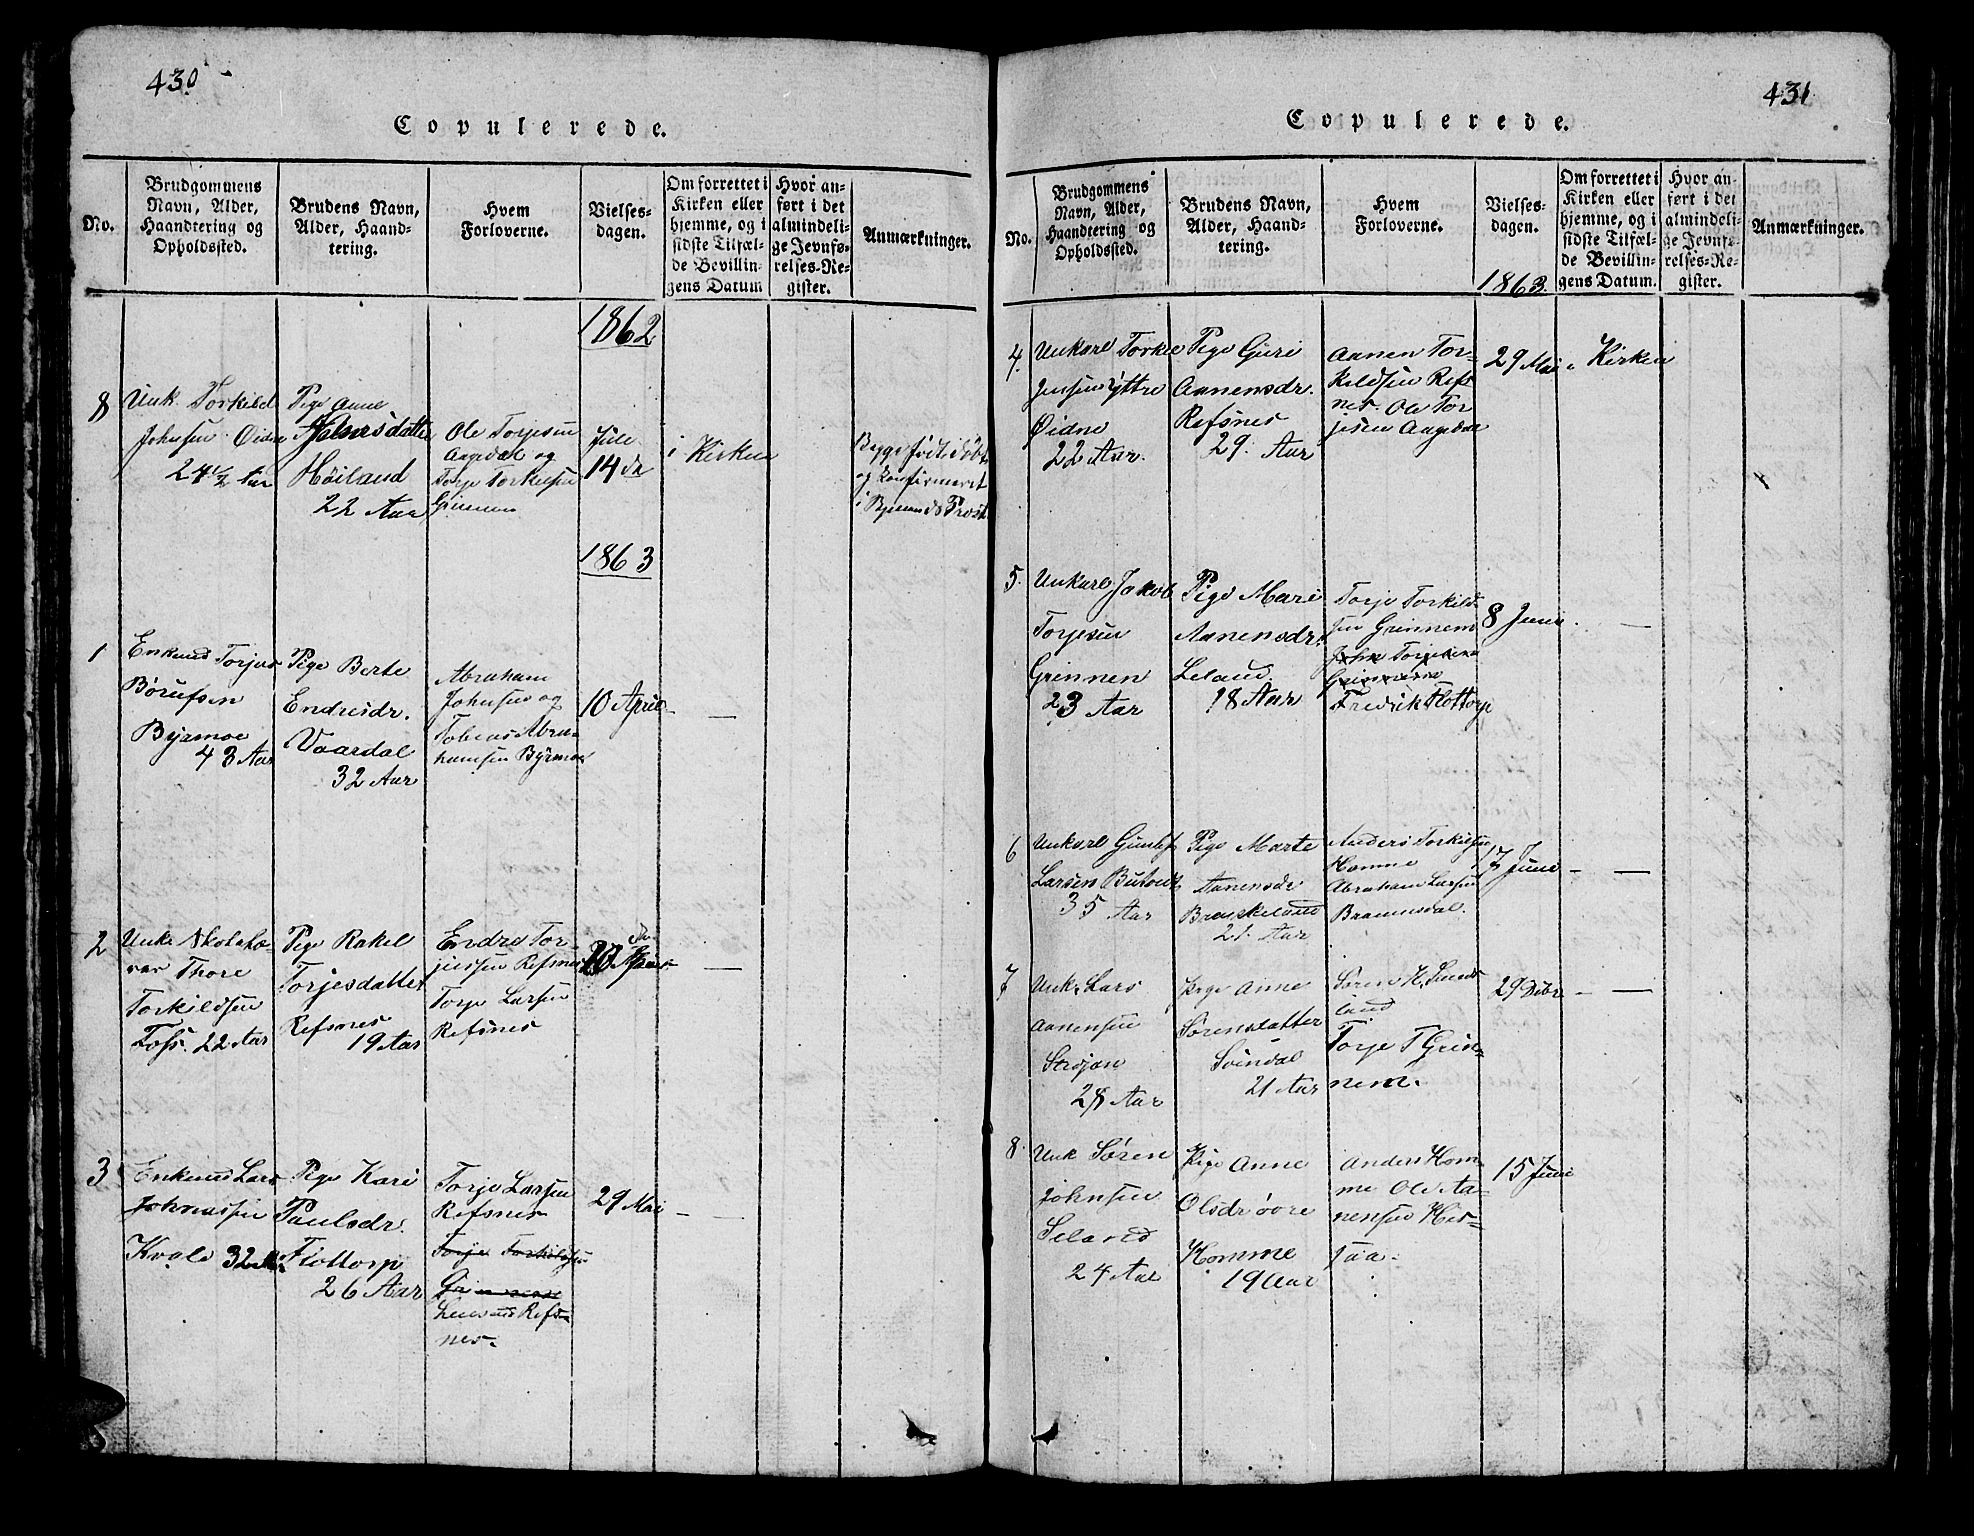 430
Copulerede.
No.
Brudgommens Navn, Alder, Haandtering og Opholdssted.
Brudens Navn, Alder, Haandtering.
Hvem Forloverne.
Vielsesdagen.
Om forrettet i Kirken eller hjemme, og i sidste Tilfælde Bevillingens Datum
Hvor anført i det almindelige Jevnførelses-Register.
Anmærkninger.
1862
8
Unk. Torkild
Johnsen Øidne
24 1/2 Aar
Pige Anne
datter
Høiland
22 Aar
Ole Torjesen
Aagedal og
Torje Torkilsen
Grinnem
Jule
14 de
i Kirken
Begge født døbt
og konfirmeret
i Bjelland Præst
1863
1
Enkemd Torjus
Børufsen
Byrmoe
43 Aar
Pige Berte
Endresdr.
Vaardal
32 Aar
Abraham
Johnsen og
Tobias Abra-
hamsen Byrmoe
10 April
—
2
Unk. Skolelæ-
rer Thore
Torkildsen
Foss. 22 Aar
Pige Rakel
Torjesdatter
Refsnes
19 Aar
Endre Tor-
jussen Refsnes
Torje Larsen
Refsnes
April
—
3
Enkemd Lars
Johnassen
Kvale 32 A.
Pige Kari
Paulsdr.
Flottorp
26 Aar
Torje Larsen
Refsnes
Torje Torkildsen
Grinnem
Refs-
nes.
29 Mai
—
431
Copulerede.
No.
Brudgommens Navn, Alder, Haandtering og Opholdssted.
Brudens Navn, Alder, Haandtering.
Hvem Forloverne.
Vielsesdagen.
1863.
Om forrettet i Kirken eller hjemme, og i sidste Tilfælde Bevillingens Datum.
Hvor anført i det almindelige Jevnførelses-Register.
Anmærkninger.
4.
Unkarl Torkel
Jensen Yttre
Øidne
22 Aar.
Pige Guri
Aanensdr.
Refsnes
29. Aar
Aanen Tor-
kildsen Refs
nes. Ole Tor
jesen Aagedal
29 Mai
Kirken
5.
Unkarl Jakob
Torjesen
Grinnen
23 Aar
Pige Mari
Aanensdr.
Leland.
18 Aar
Torje Torkild-
sen Grinnem
John Torjesen
Grinnem
Fredrik Flottorp
8 Juni.
—
6
Unkarl Gunlef
Larsen
35 Aar
Pige Marte
Aanensdr
21. Aar
Anders Torkilsen
Homme
Abraham Larsen
17 Juni
—
7
Unk. Lars
Aanensen
28 Aar
Pige Anne
Sørensdatter
Svindal
21 Aar
Søren H.
land
Torje T Grin-
nem.
29 Dcbr
—
8.
Unk Søren
Johnsen
Seland
24 Aar
Pige Anne
Olsdr øvre
Homme
19 Aar
Anders Hom
me Ole Aa-
nensen
15 Juni